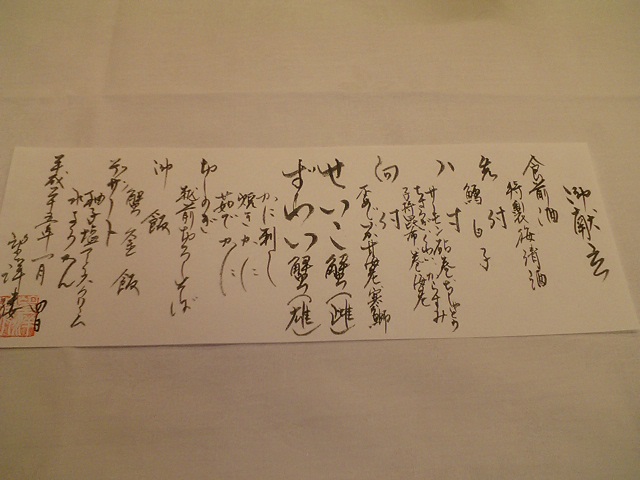 御献立
食前酒
特製梅酒
先付
鱈白子
八寸
サーモン砧巻
子持昆布
向付
甘海老 寒鰤
せいこ蟹(雌)
ずわい蟹(雄)
かに刺し
焼きカニ
茹でカニ
おしのぎ
越前おろしそば
御飯
蟹釜飯
デザート
柚子塩アイスクリーム
水ようかん
平成二十五年一月 四日
望洋楼